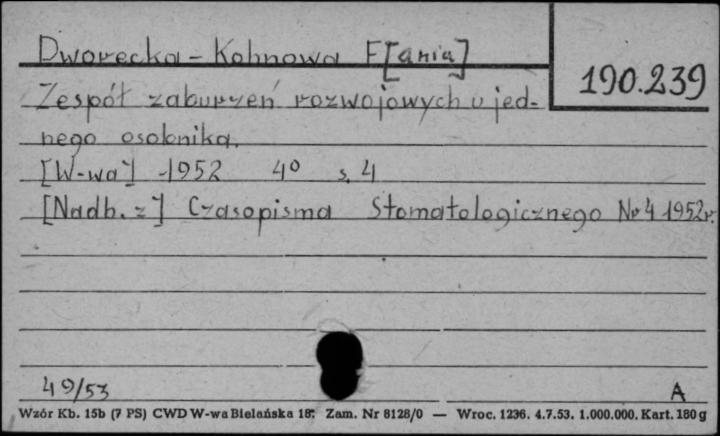 Dworecka-Kohnowa F[ania]
190.239
Zespół zaburzeń rozwojowych u jed-
nego osobnika.
[W-wa] 1952 4° s. 4
[Nadb. z] Czasopisma Stomatologicznego Nr 4 1952r.
49/53
A
Wzór Kb. 15b (7 PS) CWD W-wa Bielańska 18. Zam. Nr 8128/0 — Wroc. 1236. 4.7.53. 1.000.000. Kart. 180 g